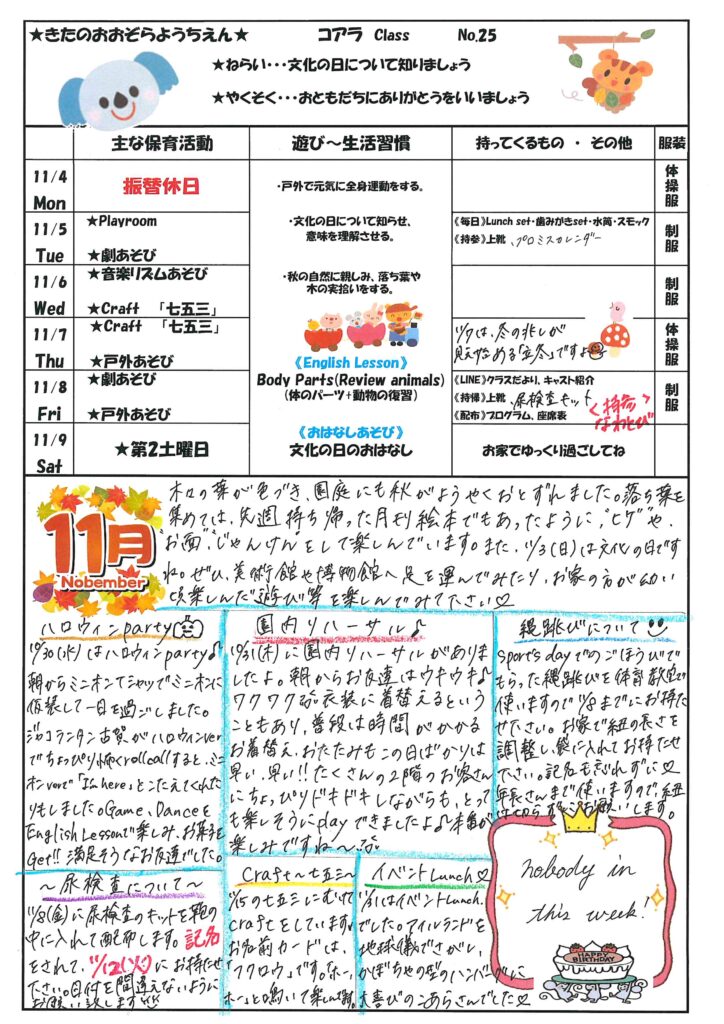 ★きたのおおぞらようちえん★
コアラ Class No.25
★ねらい・・・文化の日について知りましょう
★やくそく・・・おともだちにありがとうをいいましょう
主な保育活動 遊び～生活習慣 持ってくるもの ・ その他 服装
11/4 Mon
振替休日
・戸外で元気に全身運動をする。
体操服
11/5 Tue
★Playroom
★劇あそび
・文化の日について知らせ、
意味を理解させる。
《毎日》Lunch set・歯みがきset・水筒・スモック
《持参》上靴、プロミスカレンダー
制服
11/6 Wed
★音楽リズムあそび
★Craft 「七五三」
・秋の自然に親しみ、落ち葉や
木の実拾いをする。
制服
11/7 Thu
★Craft 「七五三」
★戸外あそび
《English Lesson》
Body Parts(Review animals)
(体のパーツ+動物の復習)
11/7は、冬の兆しが
見え始める「立冬」ですよ
体操服
11/8 Fri
★劇あそび
★戸外あそび
《LINE》クラスだより、キャスト紹介
《持帰》上靴、尿検査キット
《配布》プログラム、座席表
<持参>
なわとび
制服
11/9 Sat
★第2土曜日
《おはなしあそび》
文化の日のおはなし
お家でゆっくり過ごしてね
11月
Nobember
木々の葉が色づき、園庭にも秋がようやくおとずれました。落ち葉を
集めては、先週持ち帰った月刊絵本でもあったように、"ヒゲ"や、
"お面"、"じゃんけん"をして楽しんでいます。また、11/3(日)は文化の日です
ね。ぜひ、美術館や博物館へ足を運んでみたり、お家の方が幼い
頃楽しんだ遊び等を楽しんでみて下さい♡
ハロウィンparty
10/30(水)はハロウィンparty♪
朝からミニオンTシャツでミニオンに
仮装して一日を過ごしました。
古賀がハロウィンver
でちょっぴり怖くrollcallすると、ミニ
オンverで「I'm here」とこたえてくれた
りもしました。Game、Danceを
English Lessonで楽しみ、お菓子を
Get!! 満足そうなお友達でした。
園内リハーサル♪
10/31(木)に園内リハーサルがありま
したよ。朝からお友達はウキウキ♪
ワクワク 衣装に着替えるという
こともあり、普段は時間がかかる
お着替え、おたたみもこの日ばかりは
早い、早い!! たくさんの2階のお客さん
にちょっぴりドキドキしながらも、とって
も楽しそうにdayできましたよ♪本番が
楽しみですね～
縄跳びについて
Sports dayでのごほうびで
もらった縄跳びを体育教室で
使いますので11/8までにお持た
せ下さい。お家で紐の長さを
調整し、袋に入れてお持たせ
下さい。記名も忘れずに♡
年長さんまで使いますので、紐
は切らずにお願いします。
～尿検査について～
11/8(金)に尿検査のキットを鞄の
中に入れて配布します。記名
をされて、11/12(火)にお持たせ
下さい。日付を間違えないように
お願い致します
Craft～七五三～
11/15の七五三にむけて
craftをしています♪
お名前カードは、
「フクロウ」です。"ホー、
ホー"と鳴いて楽しい時間。
イベントLunch♡
11/1はイベントLunch
でした。アイルランドを
地球儀でさがし、
かぼちゃの型のハンバーグに
大喜びのこあらさんでした♡
nobody in
this week!
HAPPY BIRTHDAY